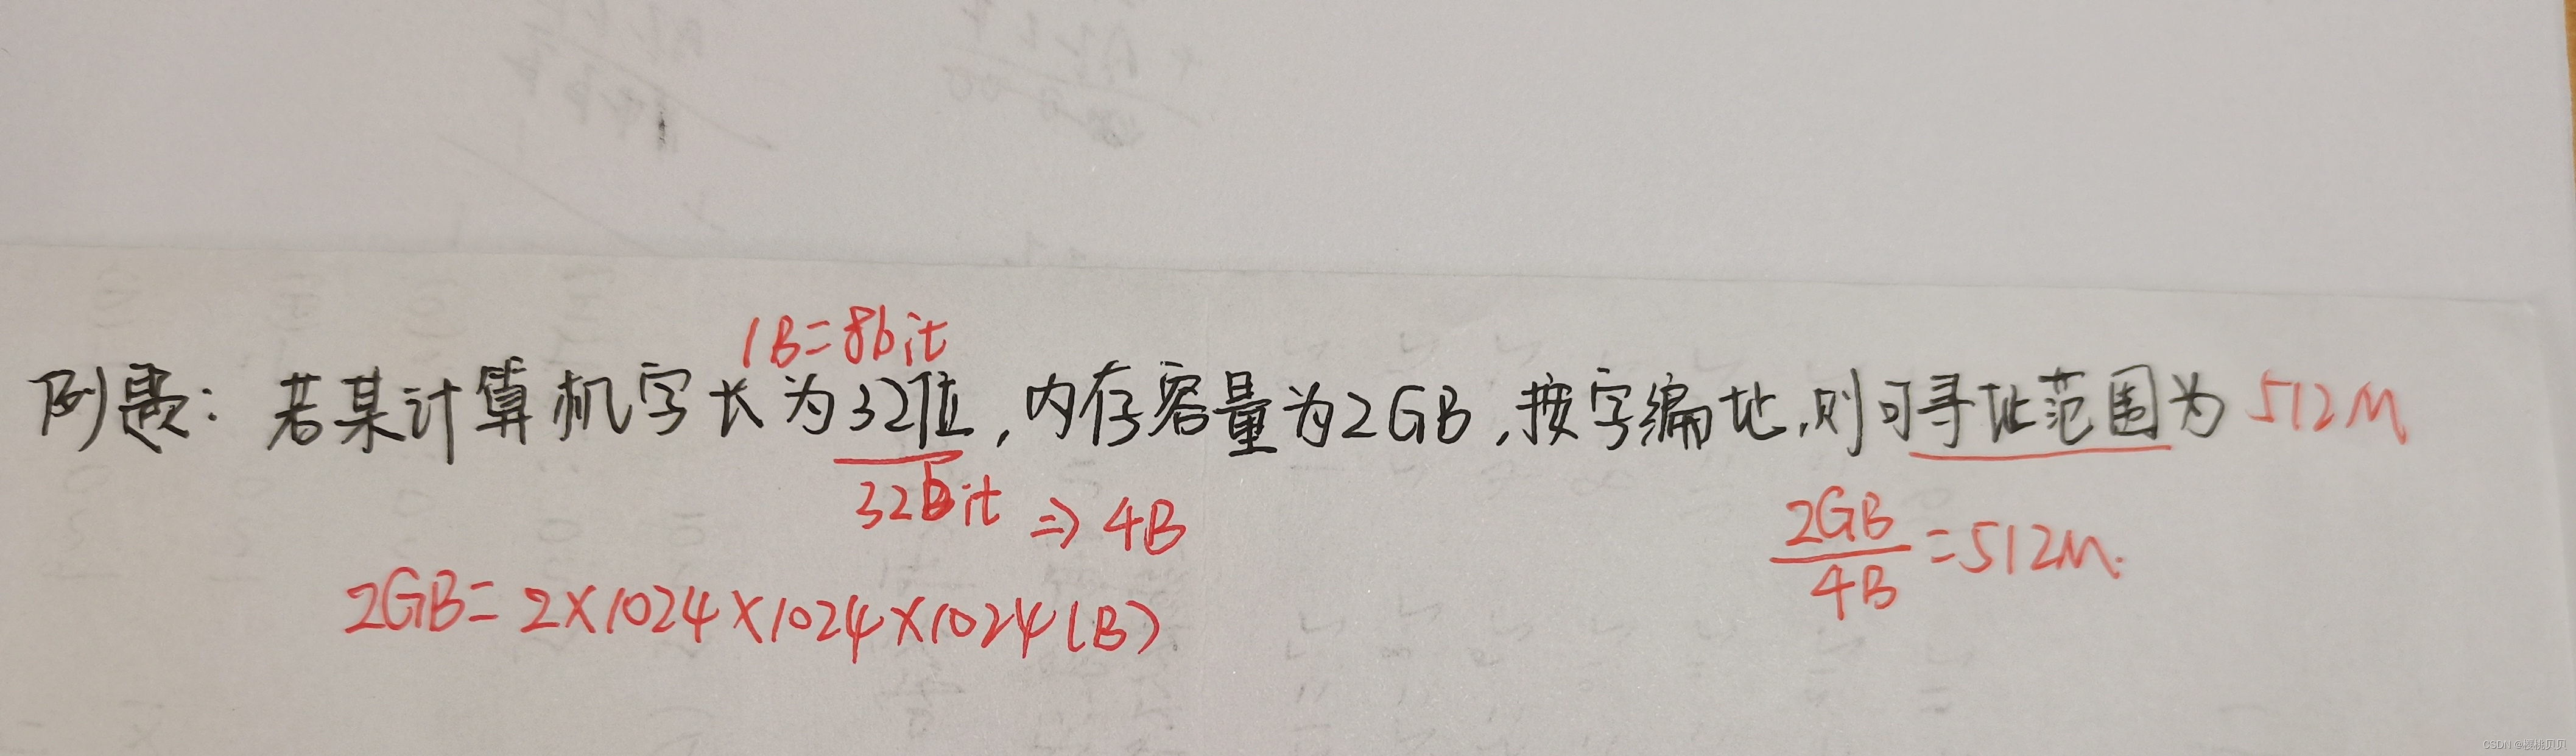 1B=8bit
例题：若某计算机字长为32位，内存容量为2GB，按字编址，则可寻址范围为 512M
32bit => 4B
2GB/4B=512M.
2GB=2×1024×1024×1024(B)
CSDN @樱桃贝贝